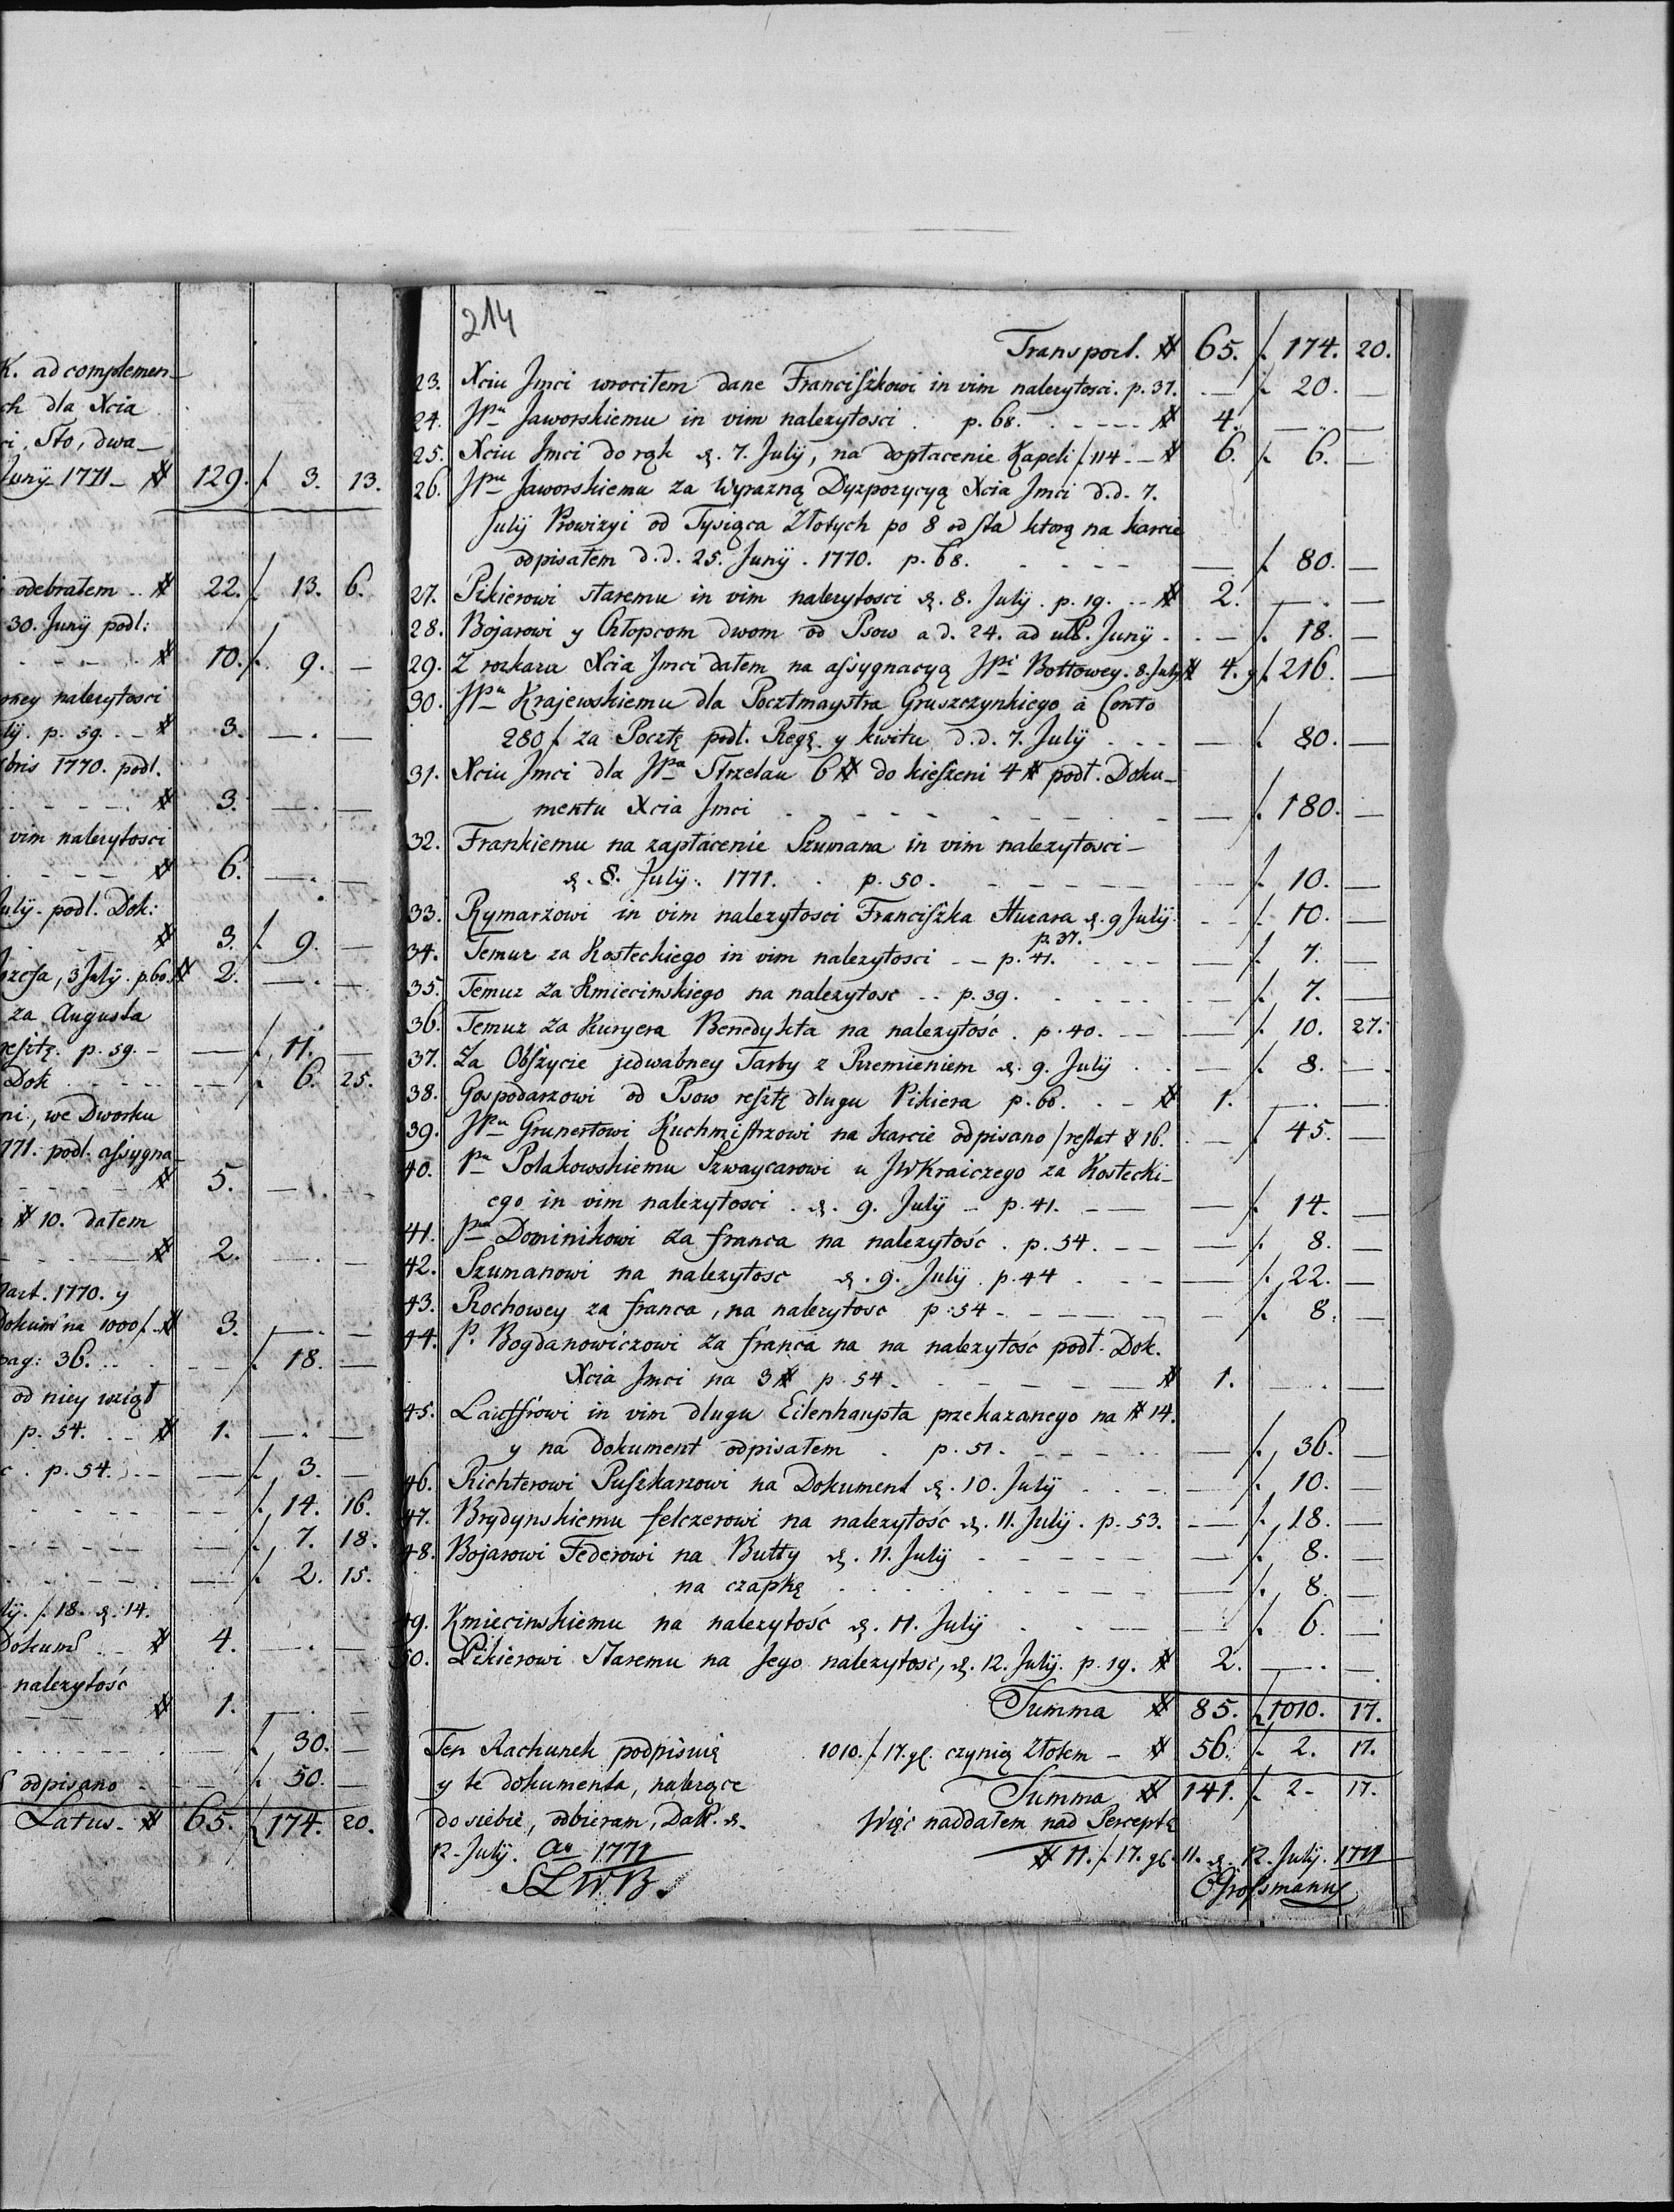 K. ad complemen_
ch dla Xcia
ci, Sto, dwa_
Junÿ 1771 _ # 129. f. 3. 13.
odebrałem .. # 22. f. 13. 6.
30. Junÿ podł:
# 10. f. 9. —
ney nalezytosci
lÿ. p. 59. _ # 3. — —
bris 1770. podł.
# 3. — —
vim nalezytosci
# 6. — —
Julÿ. podł. Dok:
# 3. f. 9. —
3 Julÿ. p. 60. # 2. — —
za Augusta
resztę. p. 59. _ — f. 11. —
Dok — f. 6. 25.
ni, we Dworku
1771. podł. assygna_
# 5. — —
# 10. dałem
# 2. — —
Mart. 1770. y
Dokum na 1000 f. # 3. — —
pag: 36. — f. 18. —
od niey wziął
p. 54. # 1. — —
c. p. 54. — f. 3. —
— f. 14. 16.
— f. 7. 18.
— f. 2. 15.
lÿ. f. 18. d. 14.
Dokum # 4. — —
nalezytość
# 1. — —
— f. 30. —
odpisano — f. 50. —
Latus. # 65. f. 174. 20.
214
Transport. # 65. f. 174. 20.
23. Xciu Jmci wrociłem dane Franciszkowi in vim nalezytosci. p. 37. — f. 20. —
24. JPu Jaworskiemu in vim nalezytosci . p. 68. # 4. — —
25. Xciu Jmci do rąk d. 7. Julÿ, na dopłacenie Kapeli f. 114 _ # 6. f. 6. —
26. JPu Jaworskiemu za Wyrazną Dyzpozycyą Xcia Jmci d.d. 7.
Julÿ Prowizyi od Tysiąca Złotych po 8 od sta ktorą na karcie
odpisałem d.d. 25. Junÿ. 1770. p. 68. — f. 80. —
27. Pikierowi staremu in vim nalezytosci d. 8. Julÿ. p. 19. # 2. — —
28. Bojarowi y Chłopcom dwom od Psow a d. 24. ad ult. Junÿ. — f. 18. —
29. Z rozkazu Xcia Jmci dałem na assygnacyą JPi Bottowey. 8. Julÿ # 4. y f. 216. —
30. JPu Krajewskiemu dla Pocztmaystra Gruszczynkiego à Conto
280 f. za Pocztę podł. Regę. y kwitu d.d. 7. Julÿ — f. 80. —
31. Xciu Jmci dla JPa Strzelau 6 # do kieszeni 4 # podł. Doku_
mentu Xcia Jmci — f. 180. —
32. Frankiemu na zapłacenie Szumana in vim nalezytosci _
d. 8. Julÿ. 1771. p. 50. — f. 10. —
33. Rymarzowi in vim nalezytosci Franciszka Huzara d. 9 Julÿ. — f. 10. —
p. 37.
34. Temuz za Kosteckiego in vim nalezytosci _ _ p. 41. — f. 7. —
35. Temuz za Kmiecinskiego na nalezytosc .. p. 39. — f. 7. —
36. Temuz za Kuryera Benedykta na nalezytość . p. 40. — f. 10. 27.
37. Za Obszycie jedwabney Tarby z Rzemieniem d. 9. Julÿ — f. 8. —
38. Gospodarzowi od Psow resztę dlugu Pikiera p. 60. # 1. — —
39. JPu Grunertowi Kuchmistrzowi na karcie odpisano / restat # 16. — f. 45. —
40. Pu Polakowskiemu Szwaycarowi u JWKraiczego za Kostecki_
ego in vim nalezytosci . d. 9. Julÿ _ p. 41. — f. 14. —
41. Pu Dominikowi za franca na nalezytość . p. 54. — f. 8. —
42. Szumanowi na nalezytosc d. 9. Julÿ. p. 44 — f. 22. —
43. Rochowey za franca, na nalezytosc p. 54 — f. 8. —
44. P. Bogdanowiczowi za franca na na nalezytość podł. Dok.
Xcia Jmci na 3 # p. 54 _ # 1. — —
45. Lauffrowi in vim dlugu Eilenhaupta przekazanego na # 14.
y na Dokument odpisałem . p. 51. — f. 36. —
46. Richterowi Puszkarzowi na Dokument d. 10. Julÿ — f. 10. —
47. Brydynskiemu felczerowi na nalezytość d. 11. Julÿ. p. 53. — f. 18. —
48. Bojarowi Federowi na Butty d. 11. Julÿ — f. 8. —
na czapkę — f. 8. —
49. Kmiecinskiemu na nalezytość d. 11. Julÿ — f. 6. —
50. Pikierowi Staremu na Jego nalezytosc, d. 12. Julÿ. p. 19. # 2. — —
Summa # 85. f. 1010. 17.
Ten Rachunek podpisuię 1010. f. 17. gl. czynią Złotem _ # 56. f. 2. 17.
y te dokumenta, nalezące Summa # 141. f. 2 _ 17.
do siebie, odbieram, Datt. d. Więc naddałem nad Perceptę
12. Julÿ. Ao 1771 # 11. f. 17. gl. 11. d. 12. Julÿ. 1771
SLWB. CGrossmann